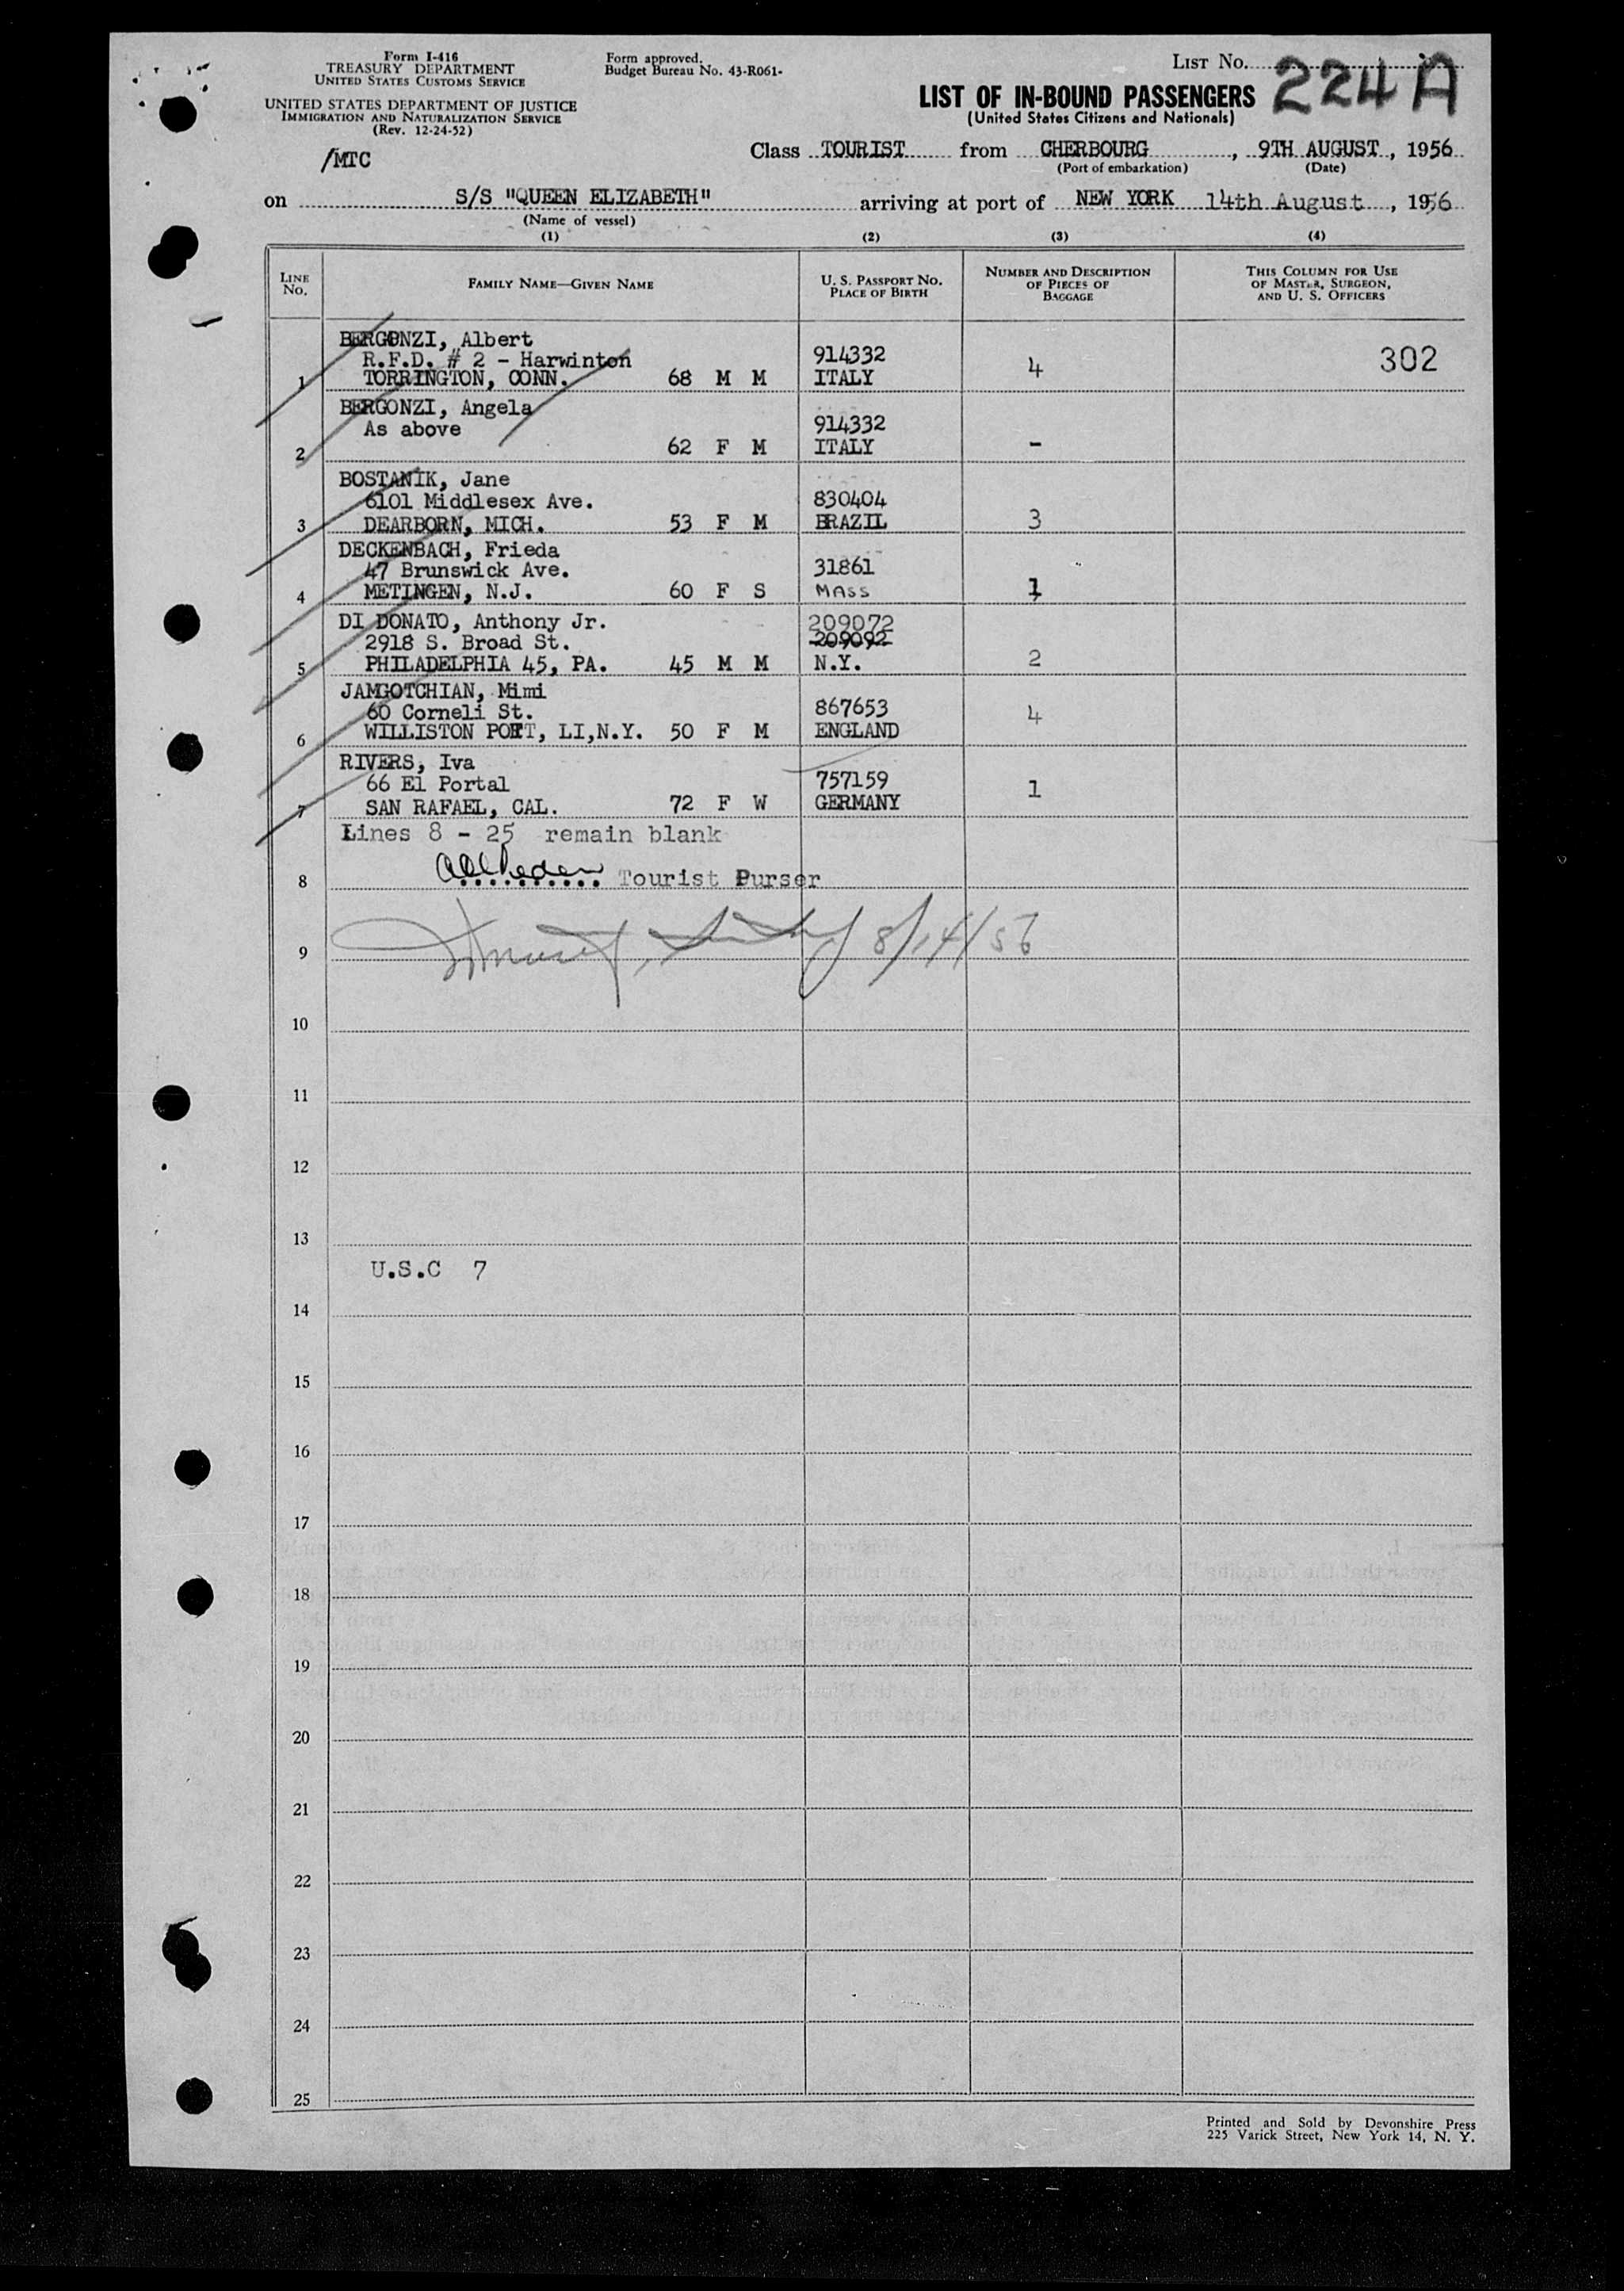 Form I-416
TREASURY DEPARTMENT
UNITED STATES CUSTOMS SERVICE
UNITED STATES DEPARTMENT OF JUSTICE
IMMIGRATION AND NATURALIZATION SERVICE
(Rev. 12-24-52)
/MTC
Form approved.
Budget Bureau No. 43-R061-
LIST NO. 224 A
LIST OF IN-BOUND PASSENGERS
(United States Citizens and Nationals)
Class TOURIST from CHERBOURG, 9TH AUGUST, 1956
(Port of embarkation) (Date)
on S/S "QUEEN ELIZABETH" arriving at port of NEW YORK 14th August, 1956
(Name of vessel)
(1) (2) (3) (4)
LINE NO. FAMILY NAME—GIVEN NAME U. S. PASSPORT NO. PLACE OF BIRTH NUMBER AND DESCRIPTION OF PIECES OF BAGGAGE THIS COLUMN FOR USE OF MASTER, SURGEON, AND U. S. OFFICERS
BERGONZI, Albert
R.F.D. # 2 - Harwinton 914332 4 302
1 TORRINGTON, CONN. 68 M M ITALY
BERGONZI, Angela
As above 914332
2 62 F M ITALY -
BOSTANIK, Jane
6101 Middlesex Ave. 830404
3 DEARBORN, MICH. 53 F M BRAZIL 3
DECKENBACH, Frieda
47 Brunswick Ave. 31861
4 METINGEN, N.J. 60 F S MASS 1
DI DONATO, Anthony Jr. 209072
2918 S. Broad St. 209092
5 PHILADELPHIA 45, PA. 45 M M N.Y. 2
JAMGOTCHIAN, Mimi
60 Corneli St. 867653 4
6 WILLISTON PORT, LI,N.Y. 50 F M ENGLAND
RIVERS, Iva
66 El Portal 757159 1
7 SAN RAFAEL, CAL. 72 F W GERMANY
Lines 8 - 25 remain blank
8 .......... Tourist Purser
9 8/14/56
10
11
12
13
U.S.C 7
14
15
16
17
18
19
20
21
22
23
24
25
Printed and Sold by Devonshire Press
225 Varick Street, New York 14, N. Y.